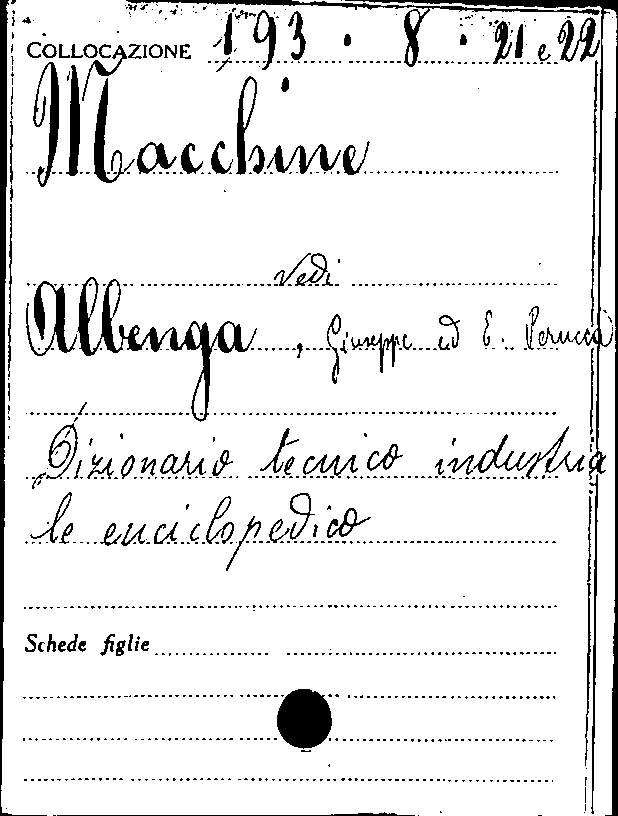 COLLOCAZIONE 193 . 8 . 21 e 22
Macchine
Vedi
Albenga, Giuseppe ed E. Perucca
Dizionario tecnico industria
le enciclopedico
Schede figlie